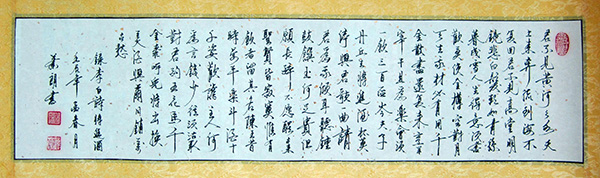 君不見黄河之水天
上来奔流到海不
復回君不見高堂明
鏡悲白髮朝如青絲
暮成雪人生得意須盡
歡莫使金樽空對月
天生我材必有用千
金散盡還復来烹羊
宰牛且為樂會須
一飲三百杯岑夫子
丹丘生將進酒杯莫
停與君歌一曲請
君為我傾耳聽鐘
鼓饌玉何足貴但
願長醉不願醒古来
聖賢皆寂寞惟有
飲者留其名陳王昔
時宴平樂斗酒十
千恣歡謔主人何
為言少錢徑須沽取
對君酌五花馬千
金裘呼兒將出換
美酒與爾同銷萬
古愁
錄李白詩將進酒
年春月
書